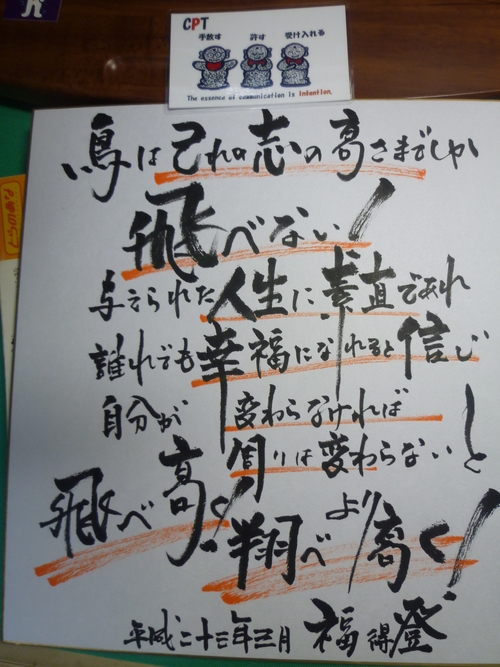 CPT
手放す 許す 受け入れる
The essence of communication is Intention.
鳥は己れの志の高さまでしか
飛べない!
与えられた人生に素直であれ
誰れでも幸福になれると信じ
自分が変わらなければ
周りは変わらないと
飛べ高く!
翔べより高く!
平成二十三年三月 福得登